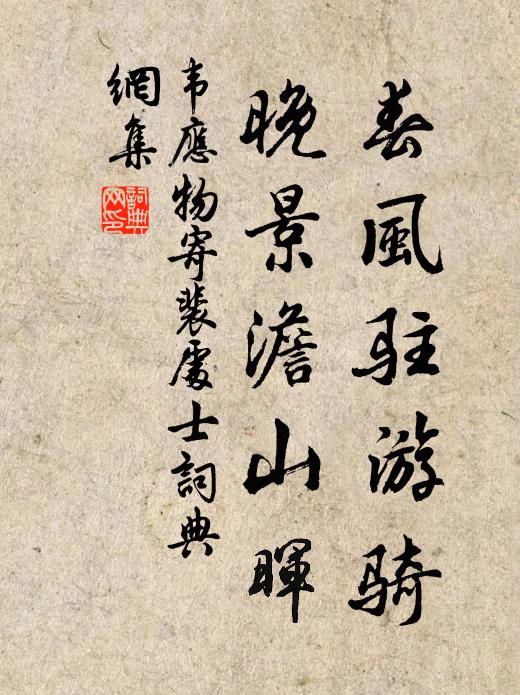 春風駐游騎
晚景澹山暉
韦應物寄裴處士詞典
網集
詞典
网印